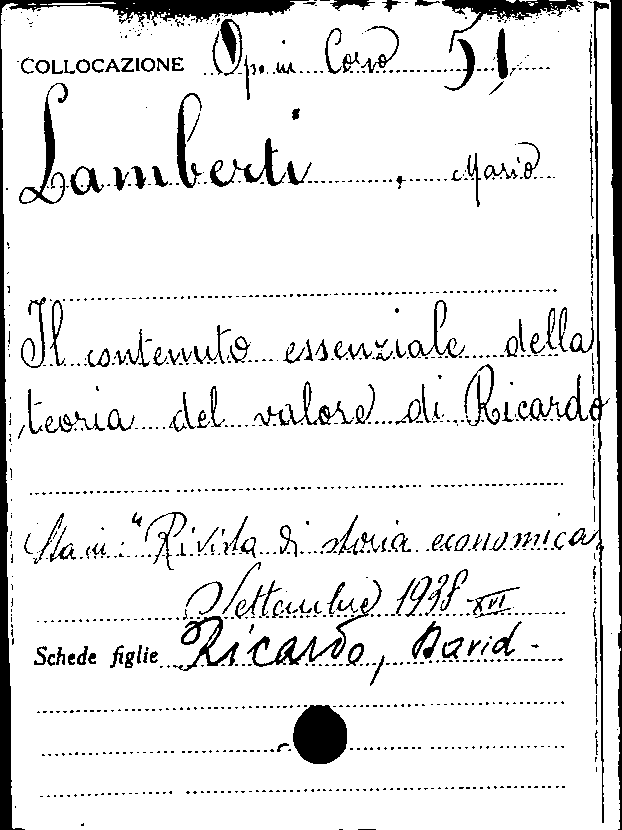 COLLOCAZIONE Op. in Corso 51
Lamberti, Mario
Il contenuto essenziale della
teoria del valore di Ricardo
Sta in: "Rivista di storia economica,
Settembre 1938 XVI
Schede figlie Ricardo, David -